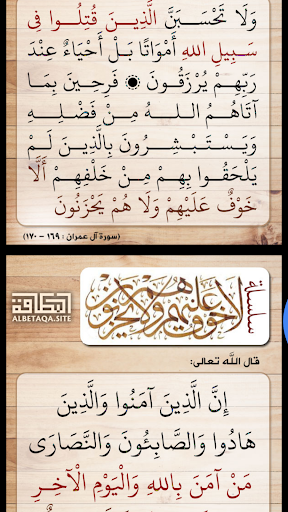 وَلَا تَحْسَبَنَّ الَّذِينَ قُتِلُوا فِي
سَبِيلِ اللهِ أَمْوَاتًا بَلْ أَحْيَاءٌ عِنْدَ
رَبِّهِمْ يُرْزَقُونَ ۞ فَرِحِينَ بِمَا
آتَاهُمُ اللهُ مِنْ فَضْلِهِ
وَيَسْتَبْشِرُونَ بِالَّذِينَ لَمْ
يَلْحَقُوا بِهِمْ مِنْ خَلْفِهِمْ أَلَّا
خَوْفٌ عَلَيْهِمْ وَلَا هُمْ يَحْزَنُونَ
(سورة آل عمران : ١٦٩ - ١٧٠)
سلسلة
لا خوف عليهم ولا هم يحزنون
البطاقة
ALBETAQA.SITE
قال الله تعالى:
إِنَّ الَّذِينَ آمَنُوا وَالَّذِينَ
هَادُوا وَالصَّابِئُونَ وَالنَّصَارَى
مَنْ آمَنَ بِاللهِ وَالْيَوْمِ الْآخِرِ